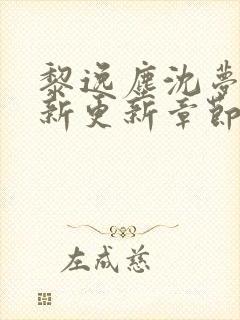 黎逸塵沈夢
新更新章節
左成慈